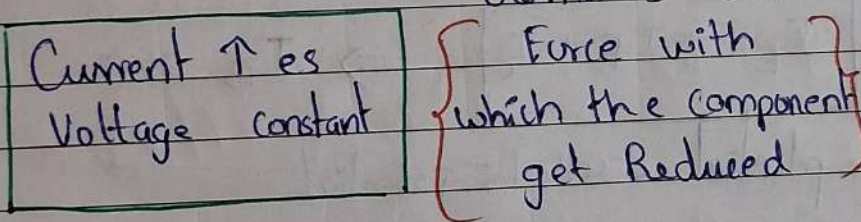 Current ↑ es
Voltage constant
Force with
which the component
get Reduced